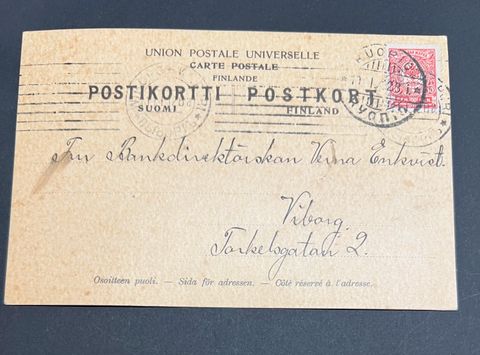 UNION POSTALE UNIVERSELLE
CARTE POSTALE
FINLANDE
POSTIKORTTI POSTKORT
SUOMI FINLAND
KUOPIO
Fru Bankdirektörskan Verna Enkvist.
Viborg.
Torkelsgatan 2.
Osoitteen puoli. — Sida för adressen. — Côté réservé à l'adresse.